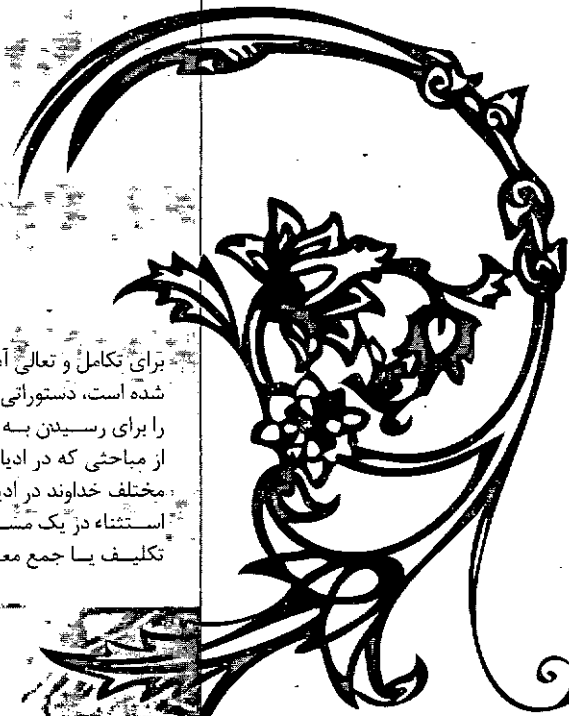 برای تکامل و تعالی
شده است، دستوراتی
را برای رسیدن به
از مباحثی که در
مختلف خداوند در
استثناء در یک
تکلیف یا جمع